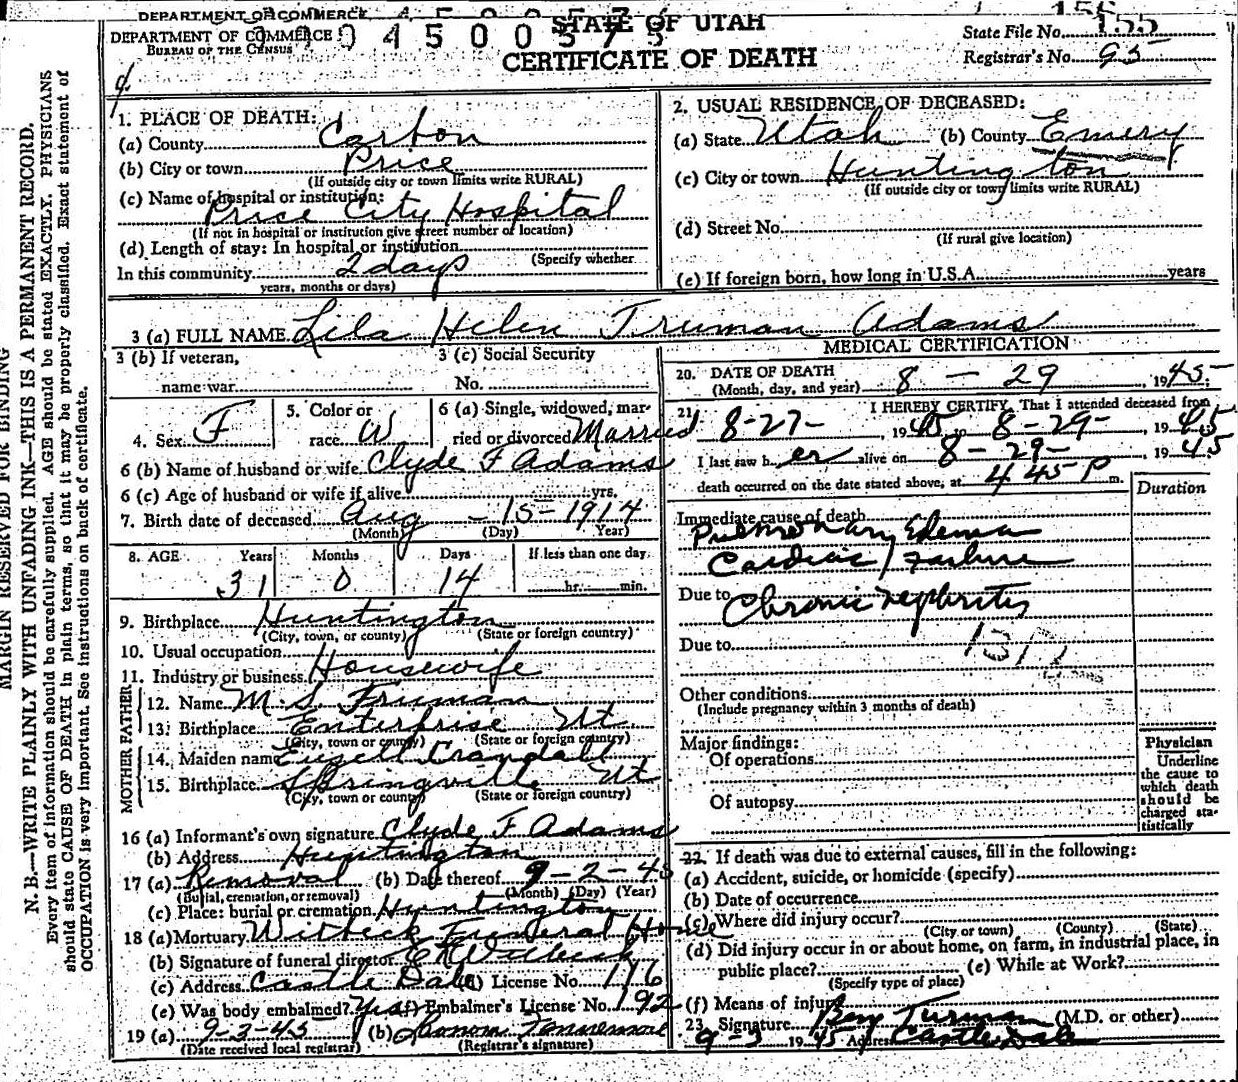 DEPARTMENT OF COMMERCE
DEPARTMENT OF COMMERCE
BUREAU OF THE CENSUS
0 4 5 0 0 5 7 5
STATE OF UTAH
CERTIFICATE OF DEATH
State File No. 155
Registrar's No. 95
MARGIN RESERVED FOR BINDING
N. B.—WRITE PLAINLY WITH UNFADING INK—THIS IS A PERMANENT RECORD.
Every item of information should be carefully supplied. AGE should be stated EXACTLY. PHYSICIANS
should state CAUSE OF DEATH in plain terms, so that it may be properly classified. Exact statement of
OCCUPATION is very important. See instructions on back of certificate.
1. PLACE OF DEATH:
(a) County Carbon
(b) City or town Price
(If outside city or town limits write RURAL)
(c) Name of hospital or institution:
Price City Hospital
(If not in hospital or institution give street number or location)
(d) Length of stay: In hospital or institution
(Specify whether
In this community 2 days
years, months or days)
2. USUAL RESIDENCE OF DECEASED:
(a) State Utah (b) County Emery
(c) City or town Huntington
(If outside city or town limits write RURAL)
(d) Street No.
(If rural give location)
(e) If foreign born, how long in U.S.A. years
3 (a) FULL NAME Lila Helen Truman Adams
3 (b) If veteran,
name war
3 (c) Social Security
No.
4. Sex F
5. Color or
race W
6 (a) Single, widowed, mar-
ried or divorced Married
6 (b) Name of husband or wife Clyde F Adams
6 (c) Age of husband or wife if alive yrs.
7. Birth date of deceased Aug - 15 - 1914
(Month) (Day) Year)
8. AGE Years Months Days If less than one day
31 0 14 hr. min.
9. Birthplace Huntington
(City, town, or county) (State or foreign country)
10. Usual occupation
11. Industry or business Housewife
FATHER
12. Name M. S. Truman
13. Birthplace Enterprise Ut
(City, town or county) (State or foreign country)
MOTHER
14. Maiden name Crandall
15. Birthplace Springville Ut
(City, town or county) (State or foreign country)
16 (a) Informant's own signature Clyde F Adams
(b) Address Huntington
17 (a) Removal (b) Date thereof 9-2-45
(Burial, cremation, or removal) (Month) (Day) (Year)
(c) Place: burial or cremation Huntington
18 (a) Mortuary Witbeck Funeral Home
(b) Signature of funeral director Witbeck
(c) Address Castle Dale (d) License No. 176
(e) Was body embalmed? Yes (f) Embalmer's License No. 192
19 (a) 9-3-45 (b)
(Date received local registrar) (Registrar's signature)
MEDICAL CERTIFICATION
20. DATE OF DEATH
(Month, day, and year) 8 - 29, 1945;
21. I HEREBY CERTIFY, That I attended deceased from
8-27-, 1945 to 8-29-, 1945
I last saw her alive on 8-29-, 1945
death occurred on the date stated above, at 4 45 P m.
Duration
Immediate cause of death
Pulmonary Edema
Cardiac Failure
Due to Chronic nephritis
Due to
Other conditions
(Include pregnancy within 3 months of death)
Major findings:
Of operations
Of autopsy
Physician
Underline
the cause to
which death
should be
charged sta-
tistically
22. If death was due to external causes, fill in the following:
(a) Accident, suicide, or homicide (specify)
(b) Date of occurrence
(c) Where did injury occur?
(City or town) (County) (State)
(d) Did injury occur in or about home, on farm, in industrial place, in
public place? (e) While at Work?
(Specify type of place)
(f) Means of injury
23. Signature Turman (M.D. or other)
9-3 1945 Address Castle Dale